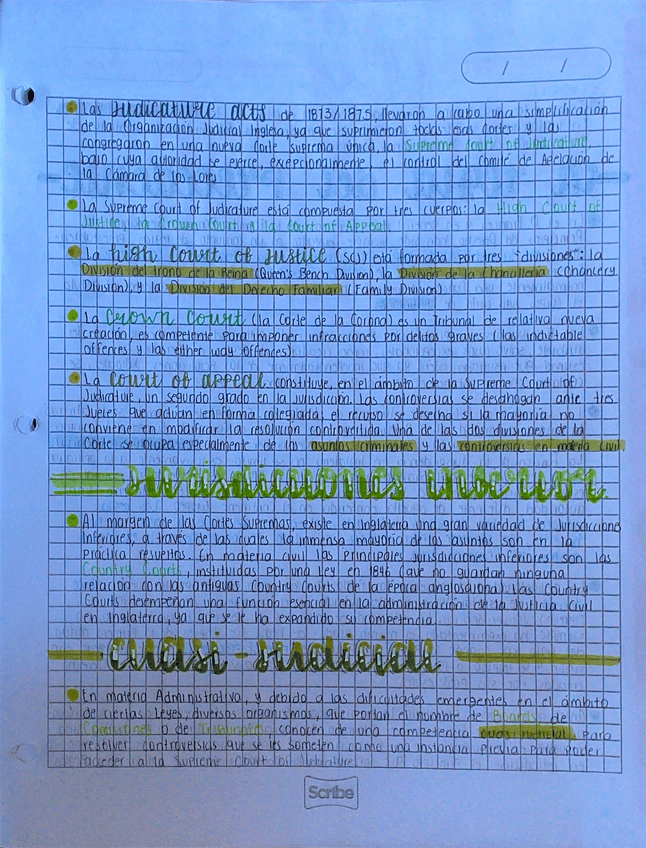 / /
Las Judicature acts de 1873/1875, llevaron a cabo una simplificación
de la Organización Judicial Inglesa, ya que suprimieron todas esas Cortes y las
congregaron en una nueva Corte suprema única, la Supreme Court of Judicature,
bajo cuya autoridad se ejerce, excepcionalmente, el control del Comité de Apelación de
la Cámara de los Lores
La Supreme Court of Judicature está compuesta por tres cuerpos: la High Court of
Justice, la Crown Court y la Court of Appeal
La high Court of Justice (SCJ) está formada por tres "divisiones": la
División del Trono de la Reina (Queen's Bench Division), la División de la Chancillería (Chancery
Division), y la División del Derecho Familiar (Family Division)
La Crown Court (la Corte de la Corona) es un Tribunal de relativa nueva
creación, es competente para imponer infracciones por delitos graves (las indictable
offences y las either way offences)
La Court of appeal constituye, en el ámbito de la Supreme Court of
Judicature, un segundo grado en la jurisdicción. Las controversias se desahogan ante tres
Jueces que actúan en forma colegiada, el recurso se desecha si la mayoría no
conviene en modificar la resolución controvertida. Una de las dos divisiones de la
Corte se ocupa especialmente de los asuntos criminales y las controversias en materia civil.
Jurisdicciones inferior
Al margen de las Cortes Supremas, existe en Inglaterra una gran variedad de Jurisdicciones
Inferiores, a través de las cuales la inmensa mayoría de los asuntos son en la
práctica resueltos. En materia civil las principales jurisdicciones inferiores son las
Country Courts, instituidas por una ley en 1846 (que no guardan ninguna
relación con las antiguas Country Courts de la época anglosajona). Las Country
Courts desempeñan una función esencial en la administración de la Justicia Civil
en Inglaterra, ya que se le ha expandido su competencia
cuasi-Judicial
En materia Administrativa, y debido a las dificultades emergentes en el ámbito
de ciertas Leyes, diversos organismos, que portan el nombre de Boards, de
o de conocen de una competencia cuasi-judicial para
resolver controversias que se les someten como una instancia previa para poder
acceder a la Supreme Court of Judicature
Scribe